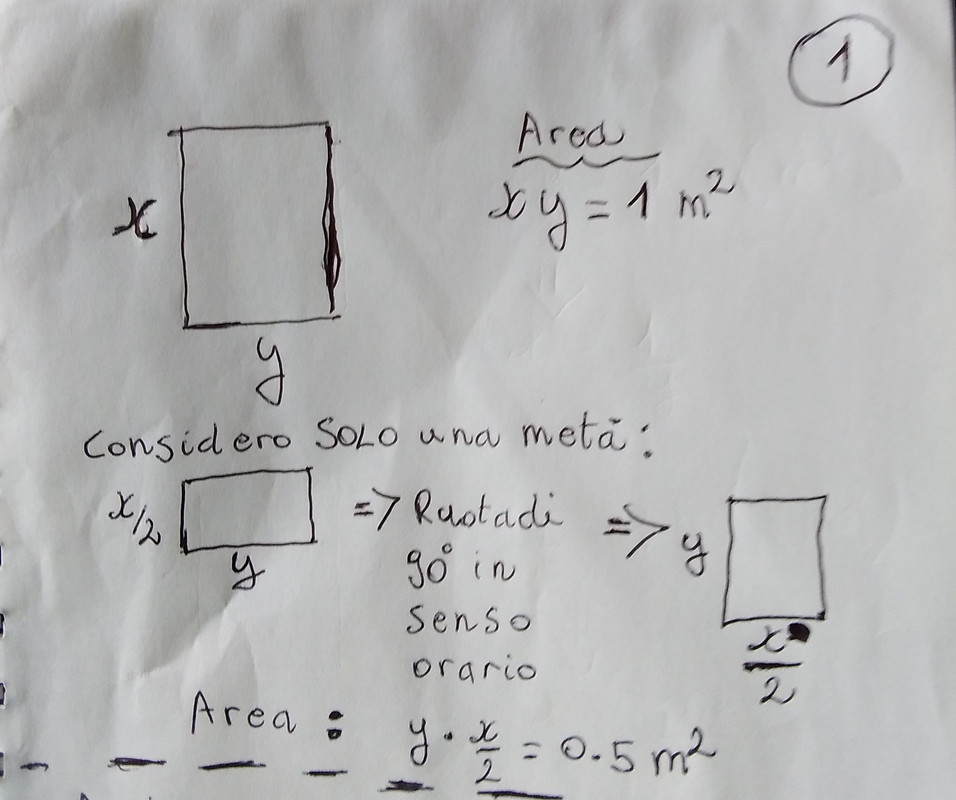 1
Area
xy = 1 m²
x
y
Considero SOLO una metà:
x/2
y
=> Ruotadi
90° in
senso
orario
=> y
x/2
Area : y · x/2 = 0.5 m²